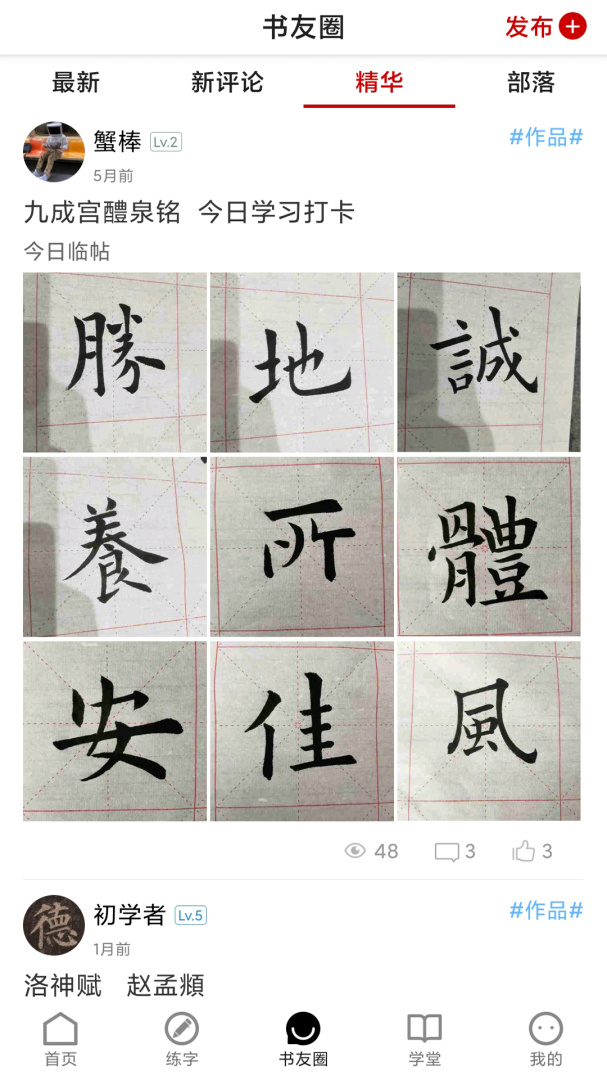 书友圈 发布
最新 新评论 精华 部落
蟹棒 Lv.2 #作品#
5月前
九成宫醴泉铭 今日学习打卡
今日临帖
勝 地 誠
養 所 體
安 佳 風
48 3 3
德
初学者 Lv.5 #作品#
1月前
洛神赋 赵孟頫
首页 练字 书友圈 学堂 我的